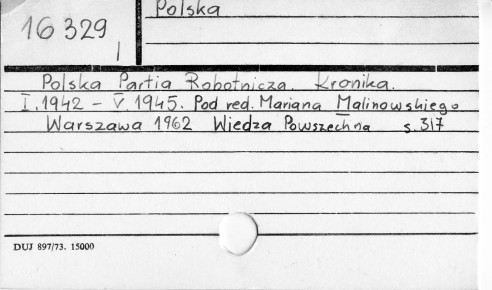 Polska
16 329
I
Polska Partia Robotnicza. Kronika.
I.1942 - V 1945. Pod red. Mariana Malinowskiego
Warszawa 1962 Wiedza Powszechna s.317
DUJ 897/73. 15000